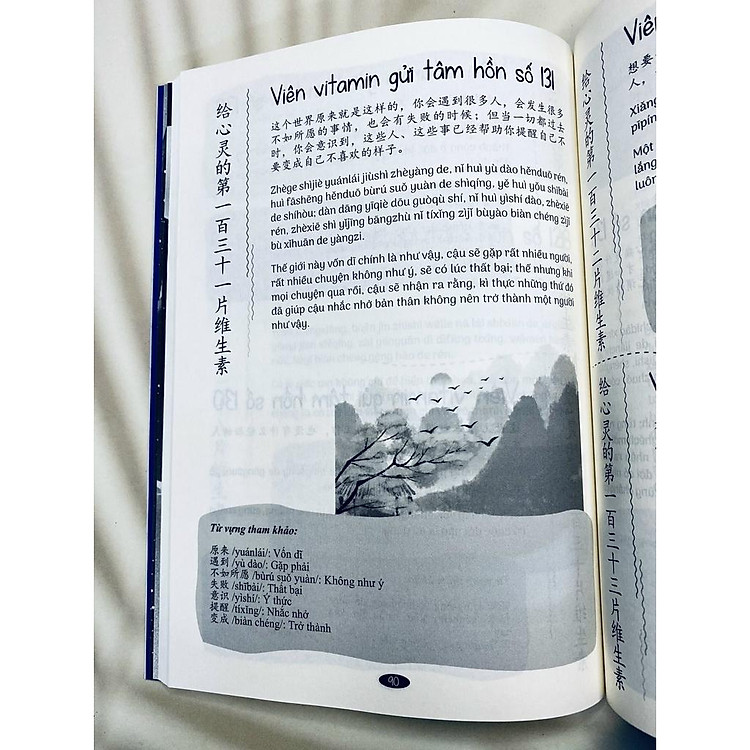 Viên vitamin gửi tâm hồn số 131
给心灵的第一百三十一片维生素
这个世界原来就是这样的，你会遇到很多人，会发生很多
不如所愿的事情，也会有失败的时候；但当一切都过去
时，你会意识到，这些人、这些事已经帮助你提醒自己不
要变成自己不喜欢的样子。
Zhège shìjiè yuánlái jiùshì zhèyàng de, nǐ huì yù dào hěnduō rén,
huì fāshēng hěnduō bùrú suǒ yuàn de shìqíng, yě huì yǒu shībài
de shíhòu; dàn dāng yīqiè dōu guòqù shí, nǐ huì yìshí dào, zhèxiē
rén, zhèxiē shì yǐjīng bāngzhù nǐ tíxǐng zìjǐ bùyào biàn chéng zìjǐ
bù xǐhuān de yàngzi.
Thế giới này vốn dĩ chính là như vậy, cậu sẽ gặp rất nhiều người,
rất nhiều chuyện không như ý, sẽ có lúc thất bại; thế nhưng khi
mọi chuyện qua rồi, cậu sẽ nhận ra rằng, kì thực những thứ đó
đã giúp cậu nhắc nhở bản thân không nên trở thành một người
như vậy.
Từ vựng tham khảo:
原来 /yuánlái/: Vốn dĩ
遇到 /yù dào/: Gặp phải
不如所愿 /bùrú suǒ yuàn/: Không như ý
失败 /shībài/: Thất bại
意识 /yìshí/: Ý thức
提醒 /tíxǐng/: Nhắc nhở
变成 /biàn chéng/: Trở thành
90
给心灵的第一百三十二片维生素
Viên
想要
人，
Xiǎng
pīpín
Một
lắng
luôn
给心灵的第一百三十三片维生素